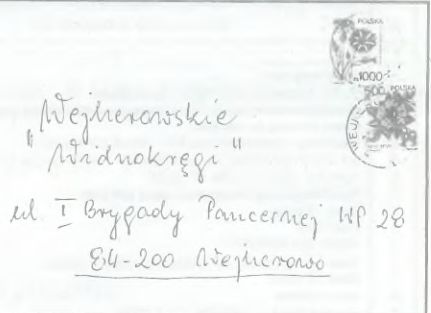 POLSKA
1000
500 POLSKA
WEJ
Wejherowskie
"Widnokręgi"
ul. I Brygady Pancernej WP 28
84-200 Wejherowo